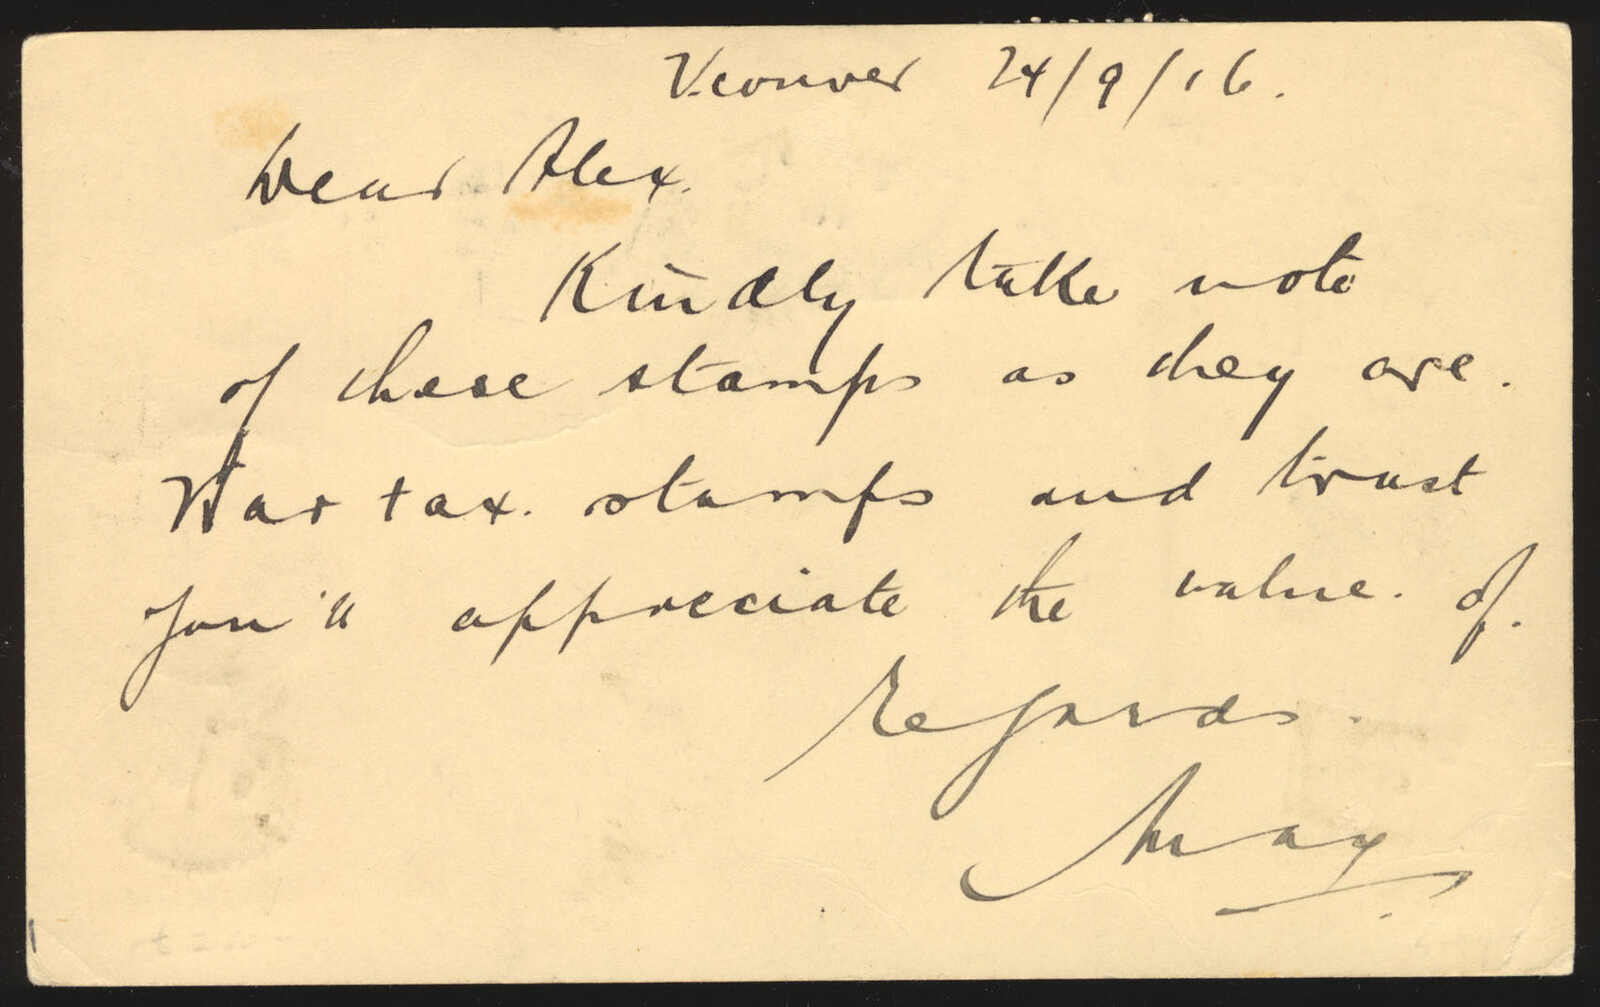 V.couver 24/9/16.
Dear Alex.
Kindly take note
of these stamps as they are.
War tax. stamps and trust
you'll appreciate the value. of.
Regards.
Max